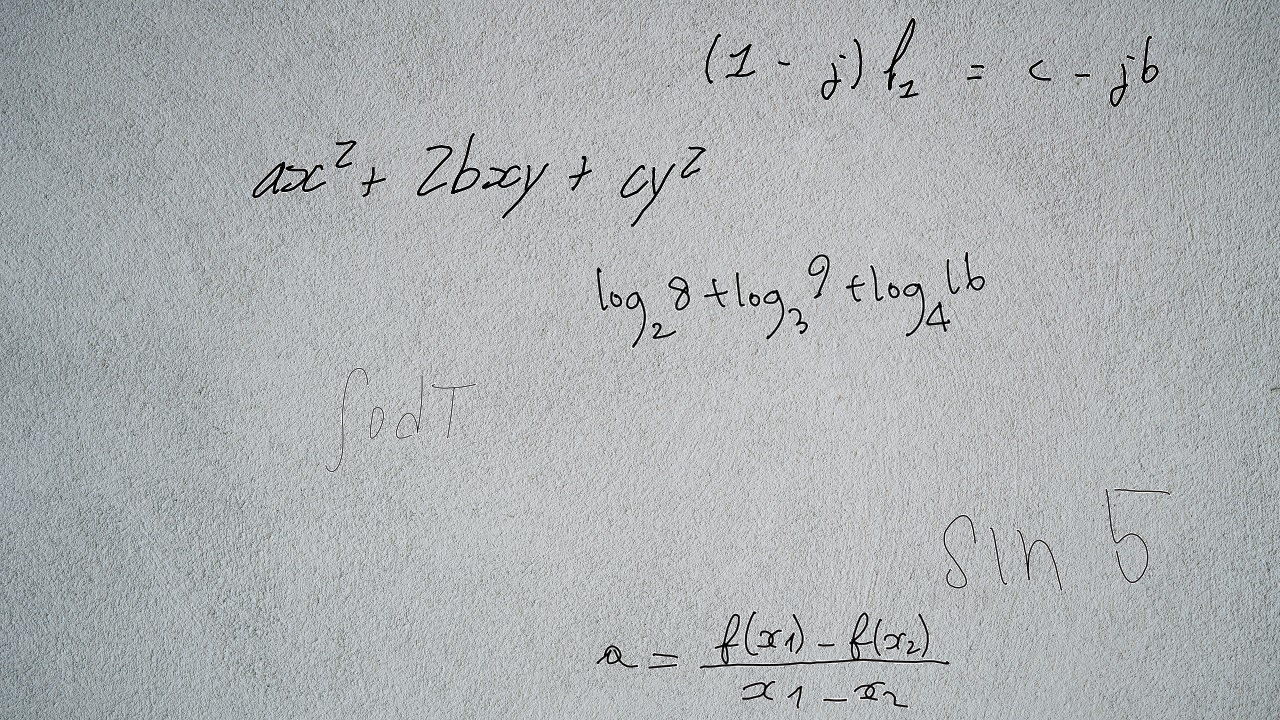 (1 - j) f₁ = c - jb
ax² + 2bxy + cy²
log₂ 8 + log₃ 9 + log₄ 16
∫ 0 dT
sin 5
a = \frac{f(x₁) - f(x₂)}{x₁ - x₂}